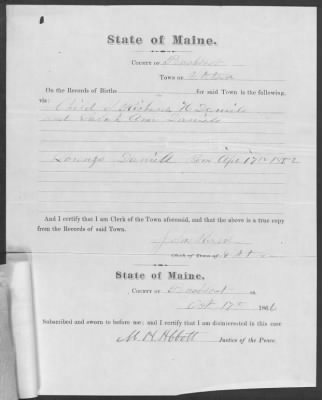 State of Maine.
COUNTY OF
TOWN OF
On the Records of Births for said Town is the following,
viz:
Child of Richard H Daniels
and Sarah Ann Daniels
Daniels Born Apr 17th 1852
And I certify that I am Clerk of the Town aforesaid, and that the above is a true copy
from the Records of said Town.
Clerk of Town of
State of Maine.
COUNTY OF ss.
Oct 17th 186
Subscribed and sworn to before me; and I certify that I am disinterested in this case
M. H. Abbott Justice of the Peace.